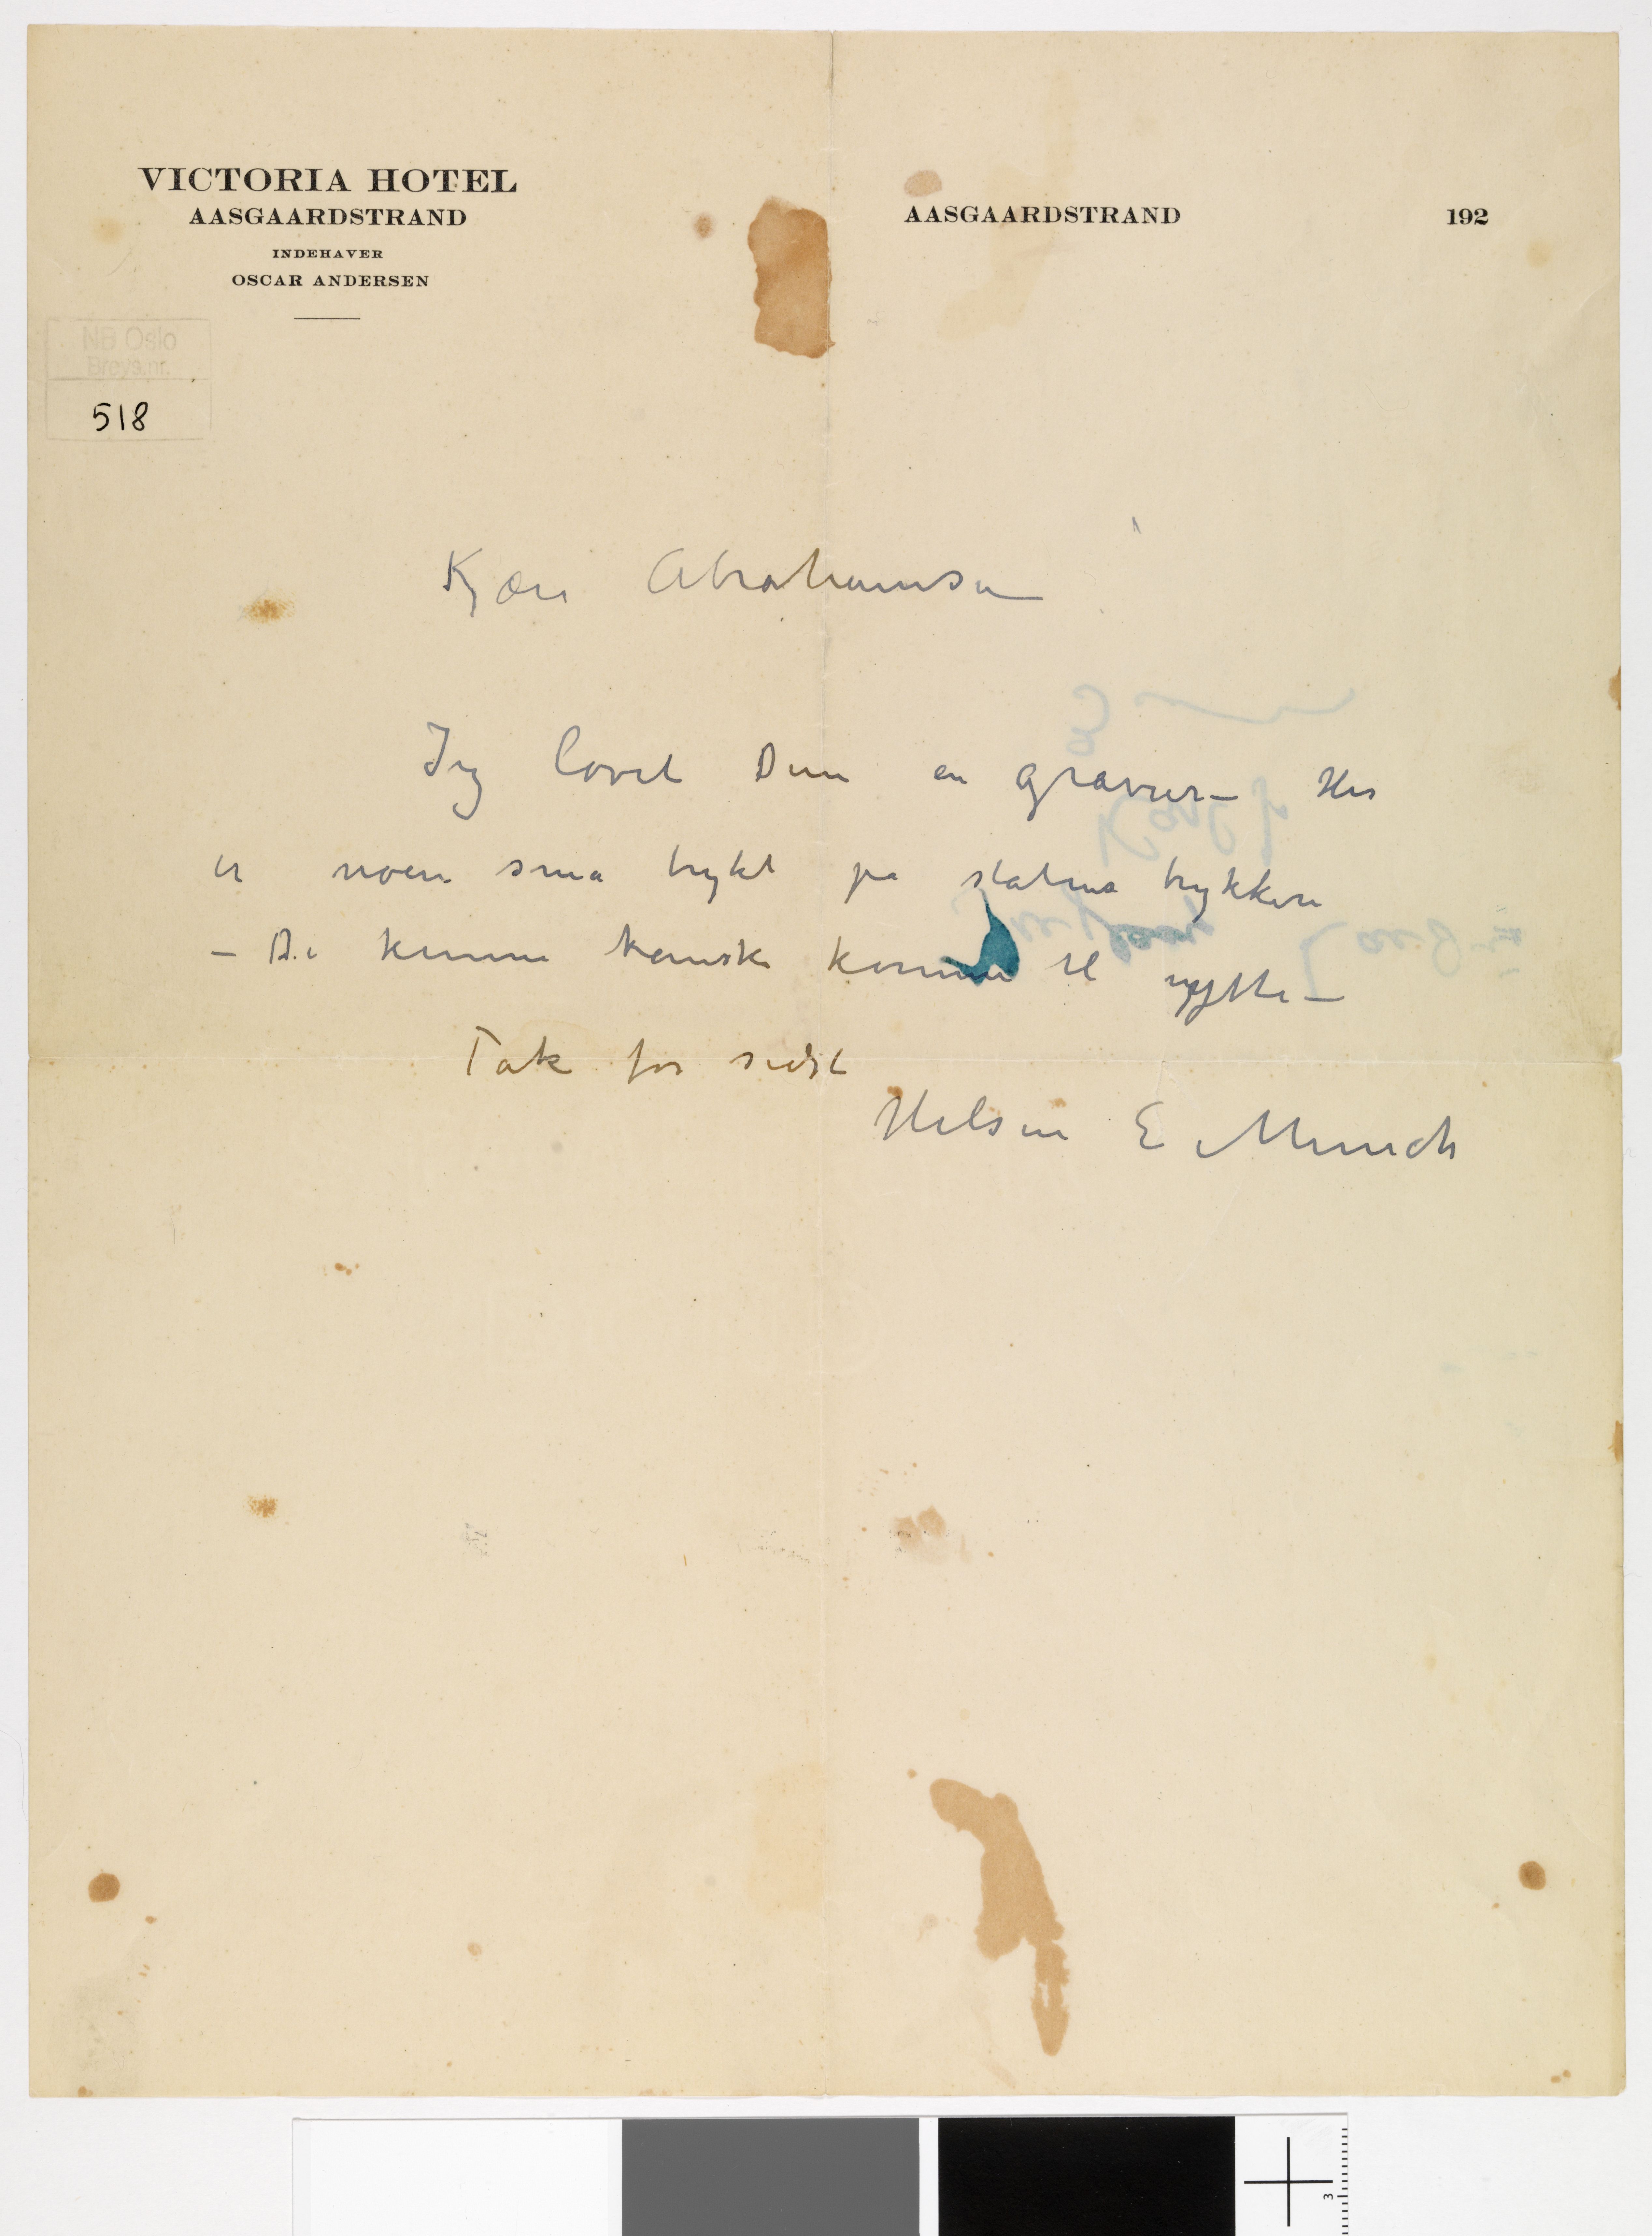 VICTORIA HOTEL
AASGAARDSTRAND
INDEHAVER
OSCAR ANDERSEN
AASGAARDSTRAND 192
NB Oslo
Brevs.nr.
518
Kjære Abrahamsen
Jeg lovet Dem en gravur – Her
er noen små trykt på statens trykkeri
– De kunne kanske komme til nytte –
Tak for sidst
Hilsen E Munch